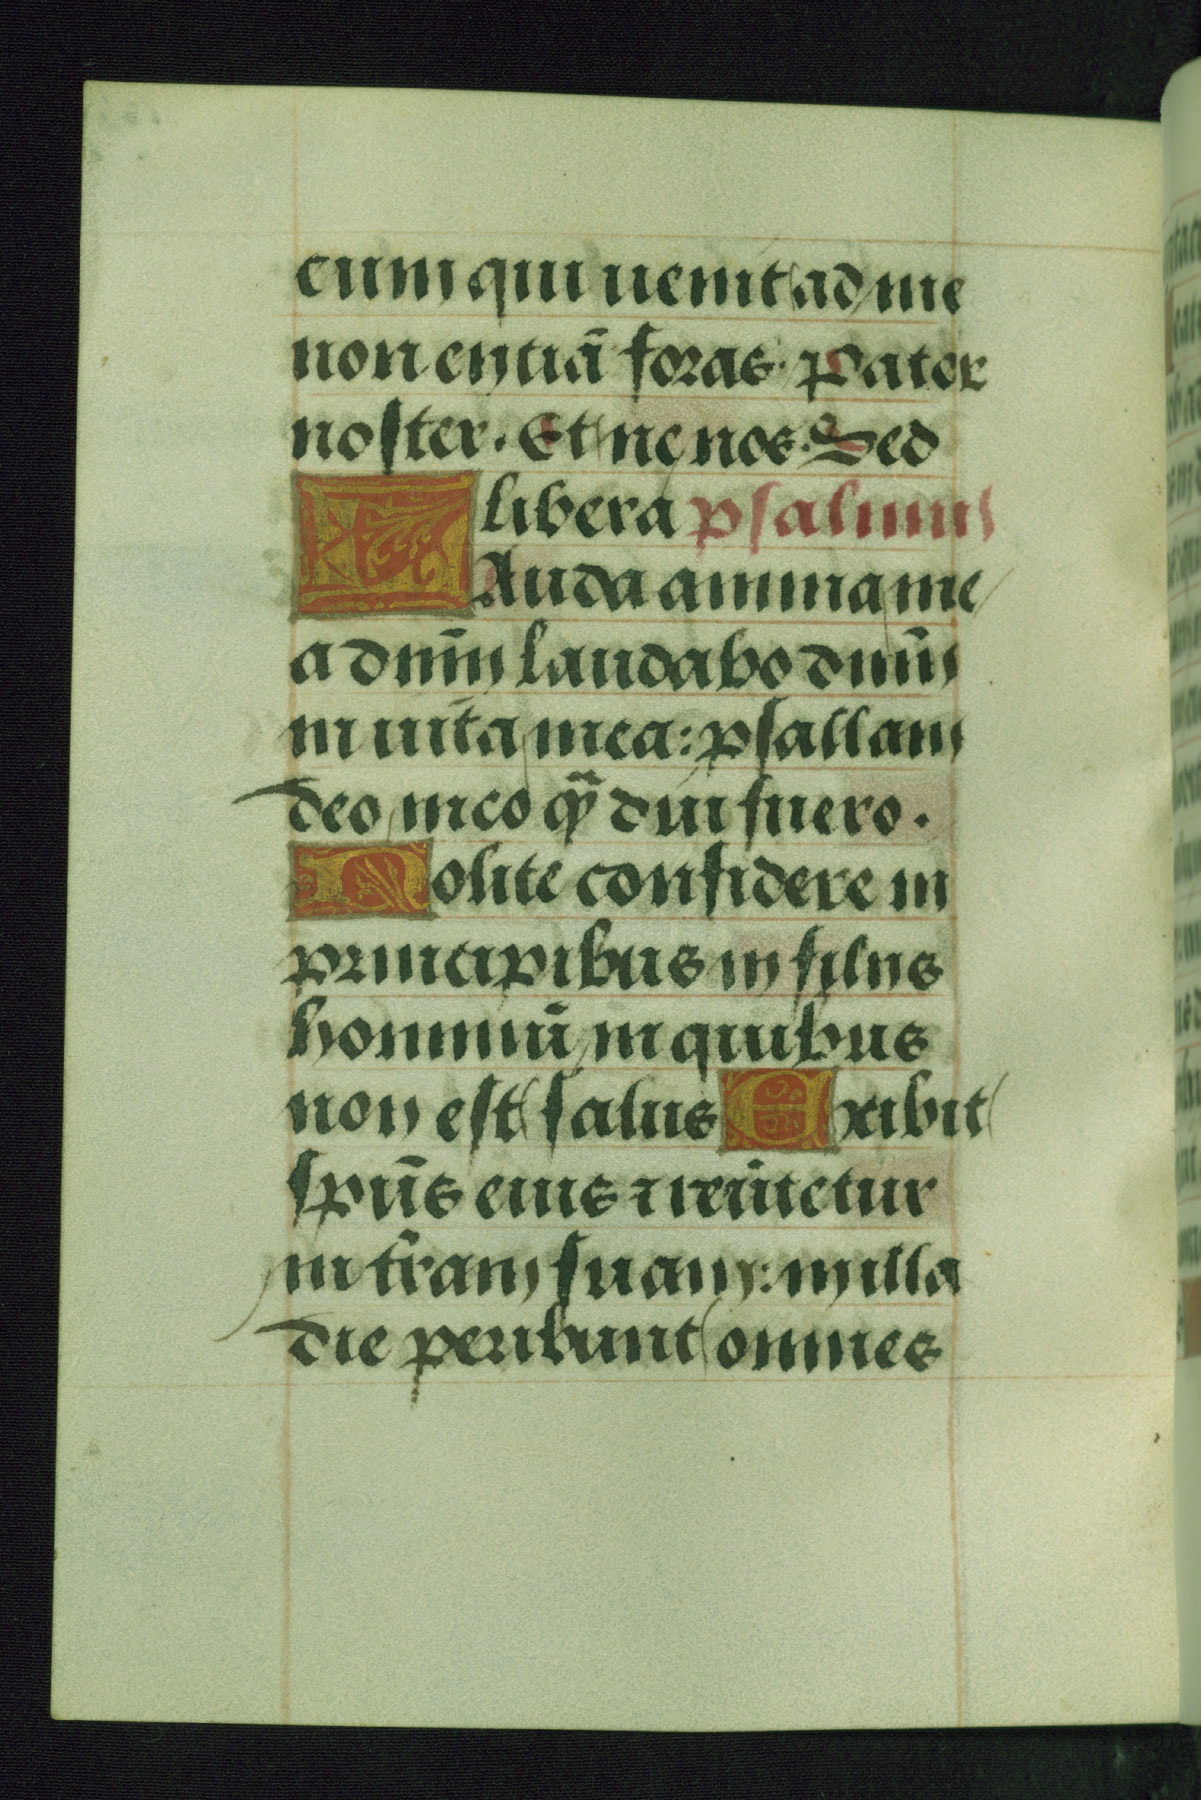 eum qui uenit ad me
non eiiciā foras. Pater
noster. Et ne nos. Sed
libera psalmus
Lauda anima me
a dn̄m laudabo dn̄m
in uita mea: psallam
deo meo qͣ̄diu fuero.
Nolite confidere in
principibus in filiis
hominū in quibus
non est salus Exibit
spūs eius ⁊ reūtetur
in tr̄am suam: in illa
die peribunt omnes